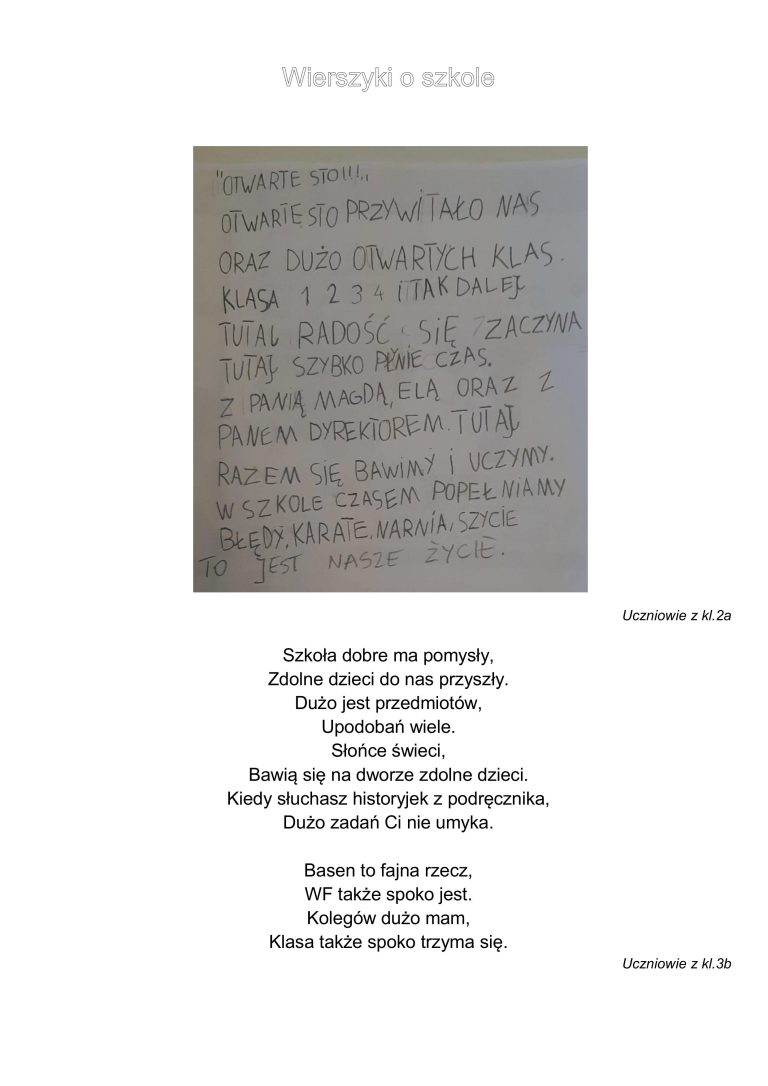 Wierszyki o szkole
"OTWARTE STO!!!,,
OTWARTE STO PRZYWITAŁO NAS
ORAZ DUŻO OTWARTYCH KLAS.
KLASA 1 2 3 4 I TAK DALEJ
TUTAJ RADOŚĆ SIĘ ZACZYNA
TUTAJ SZYBKO PŁYNIE CZAS.
Z PANIĄ MAGDĄ, ELĄ ORAZ Z
PANEM DYREKTOREM. TUTAJ
RAZEM SIĘ BAWIMY I UCZYMY.
W SZKOLE CZASEM POPEŁNIAMY
BŁĘDY, KARATE, NARNIA, SZYCIE
TO JEST NASZE ŻYCIE.
Uczniowie z kl.2a
Szkoła dobre ma pomysły,
Zdolne dzieci do nas przyszły.
Dużo jest przedmiotów,
Upodobań wiele.
Słońce świeci,
Bawią się na dworze zdolne dzieci.
Kiedy słuchasz historyjek z podręcznika,
Dużo zadań Ci nie umyka.
Basen to fajna rzecz,
WF także spoko jest.
Kolegów dużo mam,
Klasa także spoko trzyma się.
Uczniowie z kl.3b